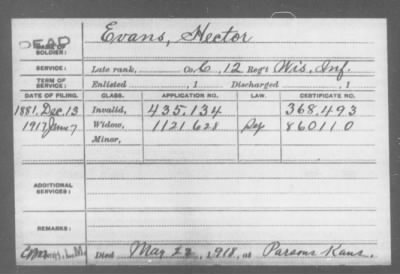 DEAD
NAME OF SOLDIER: Evans, Hector
SERVICE: Late rank, Co. C, 12 Reg't Wis. Inf.
TERM OF SERVICE: Enlisted , 1 Discharged , 1
DATE OF FILING. CLASS. APPLICATION NO. LAW. CERTIFICATE NO.
1881, Dec. 13 Invalid, 435.134 368.493
1917 June 7 Widow, 1121628 860110
Minor,
ADDITIONAL SERVICES:
REMARKS:
Died May 22, 1918, at Parsons Kans.